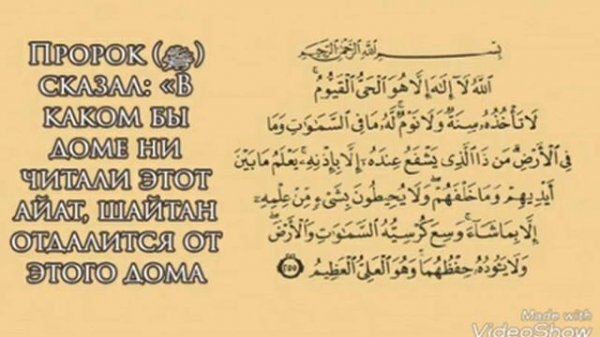 ПРОРОК (ﷺ)
СКАЗАЛ: «В
КАКОМ БЫ
ДОМЕ НИ
ЧИТАЛИ ЭТОТ
АЙАТ, ШАЙТАН
ОТДАЛИТСЯ ОТ
ЭТОГО ДОМА
بِسْمِ اللَّهِ الرَّحْمَٰنِ الرَّحِيمِ
اللَّهُ لَا إِلَٰهَ إِلَّا هُوَ الْحَيُّ الْقَيُّومُ ۚ
لَا تَأْخُذُهُ سِنَةٌ وَلَا نَوْمٌ ۚ لَهُ مَا فِي السَّمَاوَاتِ وَمَا
فِي الْأَرْضِ ۗ مَنْ ذَا الَّذِي يَشْفَعُ عِنْدَهُ إِلَّا بِإِذْنِهِ ۚ يَعْلَمُ مَا بَيْنَ
أَيْدِيهِمْ وَمَا خَلْفَهُمْ ۖ وَلَا يُحِيطُونَ بِشَيْءٍ مِنْ عِلْمِهِ
إِلَّا بِمَا شَاءَ ۚ وَسِعَ كُرْسِيُّهُ السَّمَاوَاتِ وَالْأَرْضَ ۖ
وَلَا يَئُودُهُ حِفْظُهُمَا ۚ وَهُوَ الْعَلِيُّ الْعَظِيمُ ٢٥٥
Made with
VideoShow